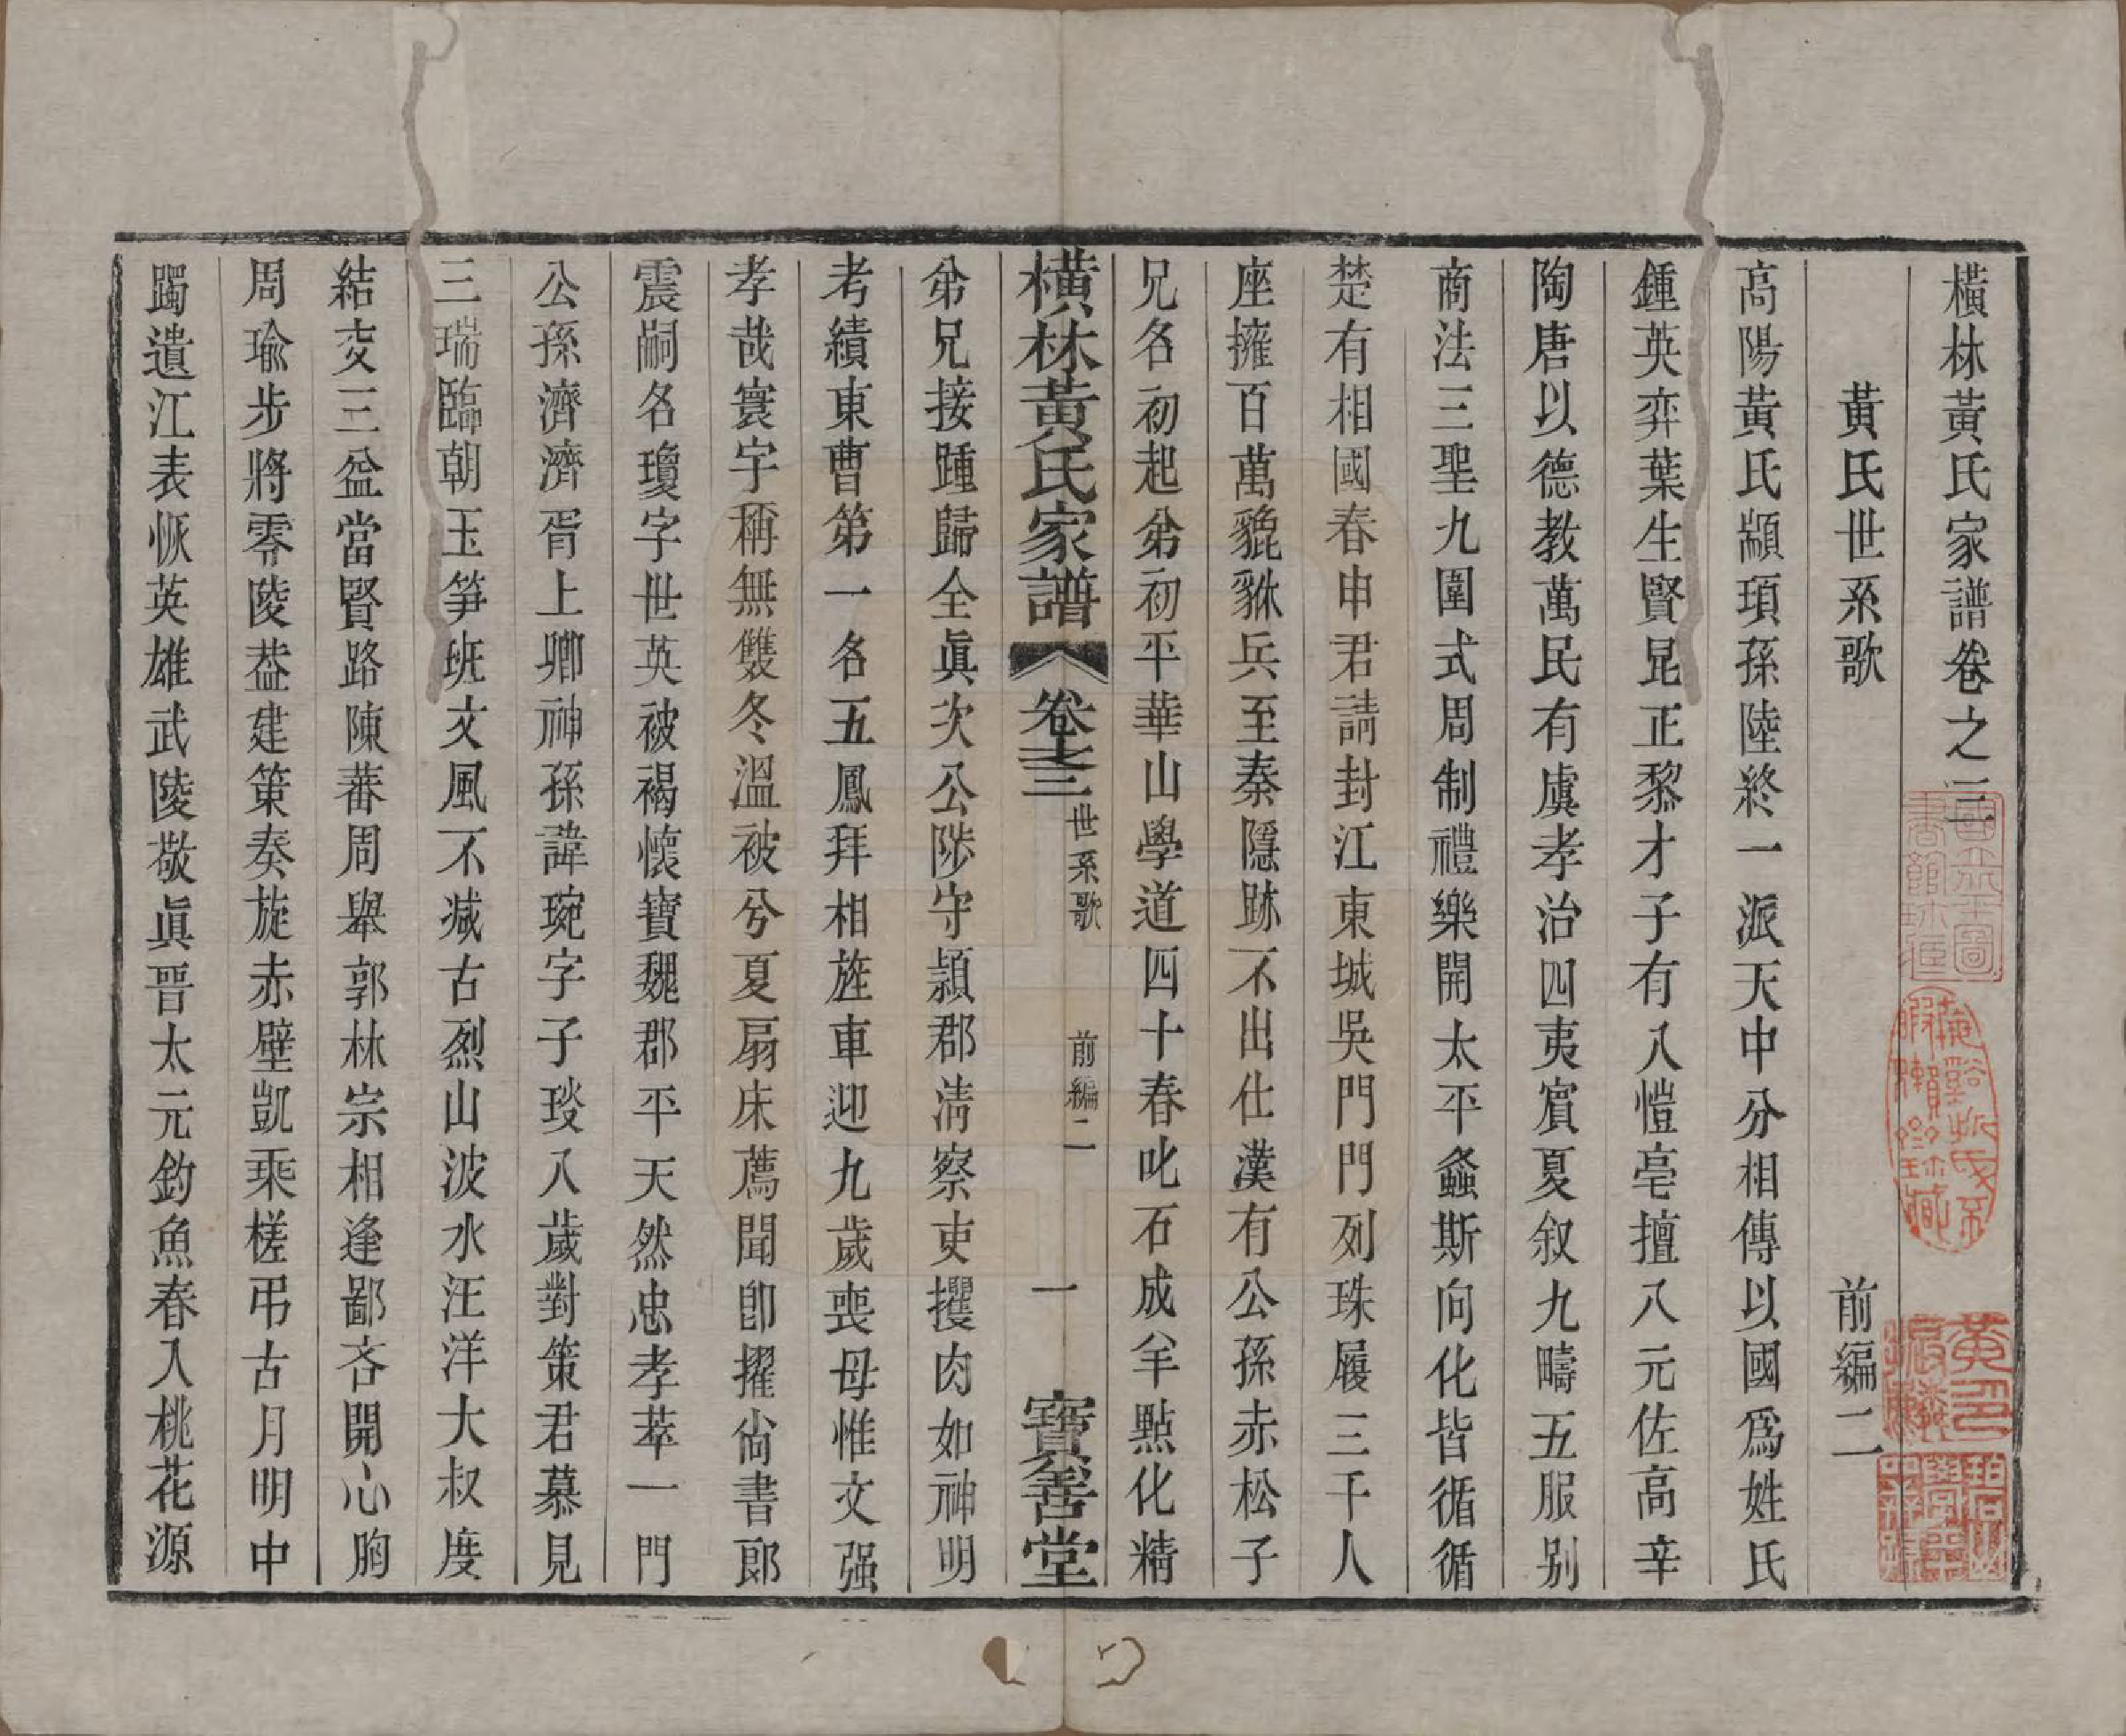 橫林黃氏家譜卷之三
黃氏世系歌　前編二
高陽黃氏顓頊孫陸終一派天中分相傳以國爲姓氏
鍾英弈葉生賢昆正黎才子有八愷亳擅八元佐高辛
陶唐以德教萬民有虞孝治四夷賓夏叙九疇五服别
商法三聖九圍式周制禮樂開太平螽斯向化皆循循
楚有相國春申君請封江東城吳門門列珠履三千人
座擁百萬貔貅兵至秦隱跡不出仕漢有公孫赤松子
兄名初起弟初平華山學道四十春叱石成羊點化精
橫林黃氏家譜　卷之三　世系歌　前編二　一　寶善堂
弟兄接踵歸全眞次公陟守潁郡淸察吏攫肉如神明
考績東曹第一名五鳳拜相旌車迎九歲喪母惟文强
孝哉寰宇稱無雙冬溫被兮夏扇床薦聞卽擢尙書郞
震嗣名瓊字世英被褐懷寶魏郡平天然忠孝萃一門
公孫濟濟胥上卿神孫諱琬字子琰八歲對策君慕見
三瑞臨朝玉筍班文風不减古烈山波水汪洋大叔度
結交三益當賢路陳蕃周舉郭林宗相逢鄙吝開心胸
周瑜步將零陵葢建策奏旋赤壁凱乘槎弔古月明中
躅遺江表恢英雄武陵敬眞晋太元釣魚春入桃花源